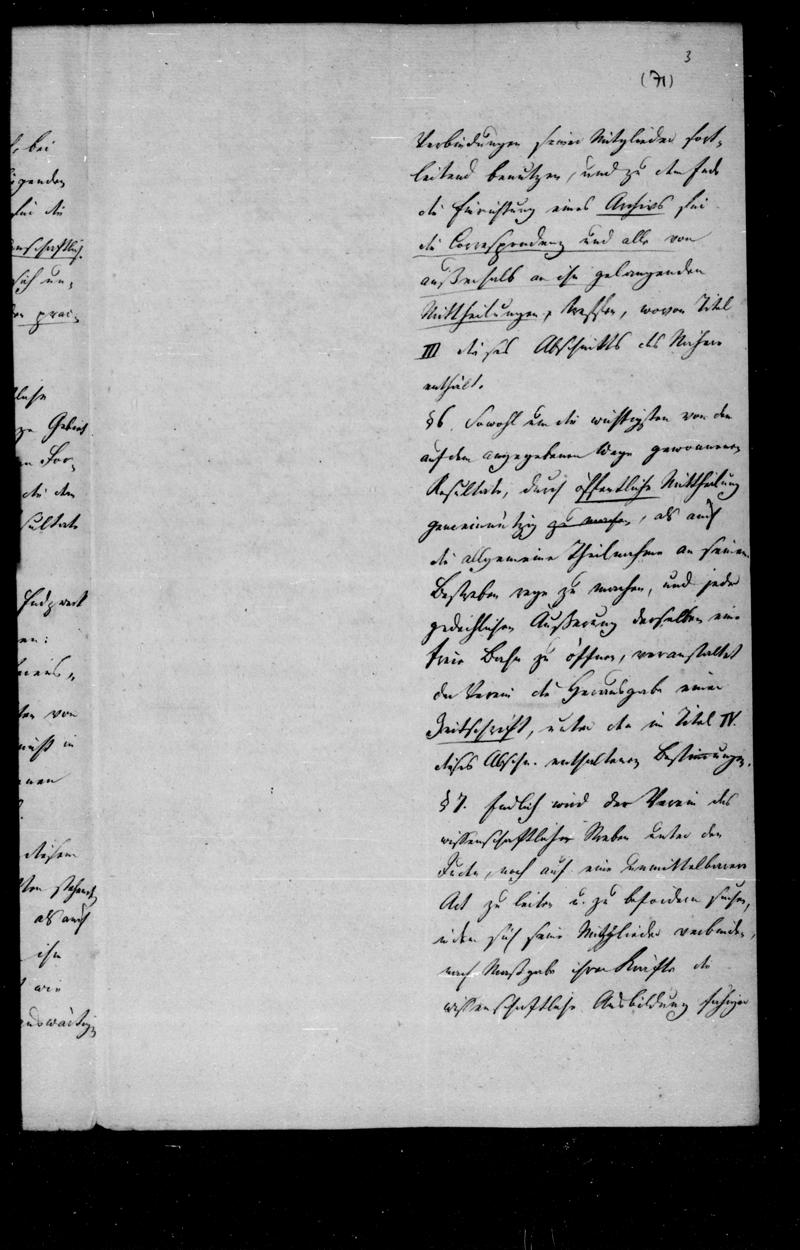 3
(71)
Verbindungen seiner Mitglieder fort-
leitend benutzen, und zu dem Ende
die Einrichtung eines Archivs für
die Correspondenz und alle von
außerhalb an ihn gelangenden
Mittheilungen, treffen, wovon Titel
III dieses Abschnitts das Nähere
enthält.
§6. Sowohl um die wichtigsten von den
auf dem angegebenen Wege gewonnenen
Resultate, durch öffentliche Mittheilung
gemeinnützig zu machen, als auch
die allgemeine Theilnahme an seinem
Bestreben rege zu machen, und jeder
gedeihlichen Äußerung derselben eine
freie Bahn zu öffnen, veranstaltet
der Verein die Herausgabe einer
Zeitschrift, unter den im Titel IV.
dieses Abschn. enthaltenen Bestimmungen.
§7. Endlich wird der Verein das
wissenschaftliche Streben unter den
Juden, noch auf eine unmittelbarere
Art zu leiten u. zu befördern suchen,
indem sich seine Mitglieder verbinden,
nach Maßgabe ihrer Kräfte die
wissenschaftliche Ausbildung fähiger
bei
für die
prai-
Gebiet
die den
Endzweck
von
in
diesem
als auch
ihn
wie